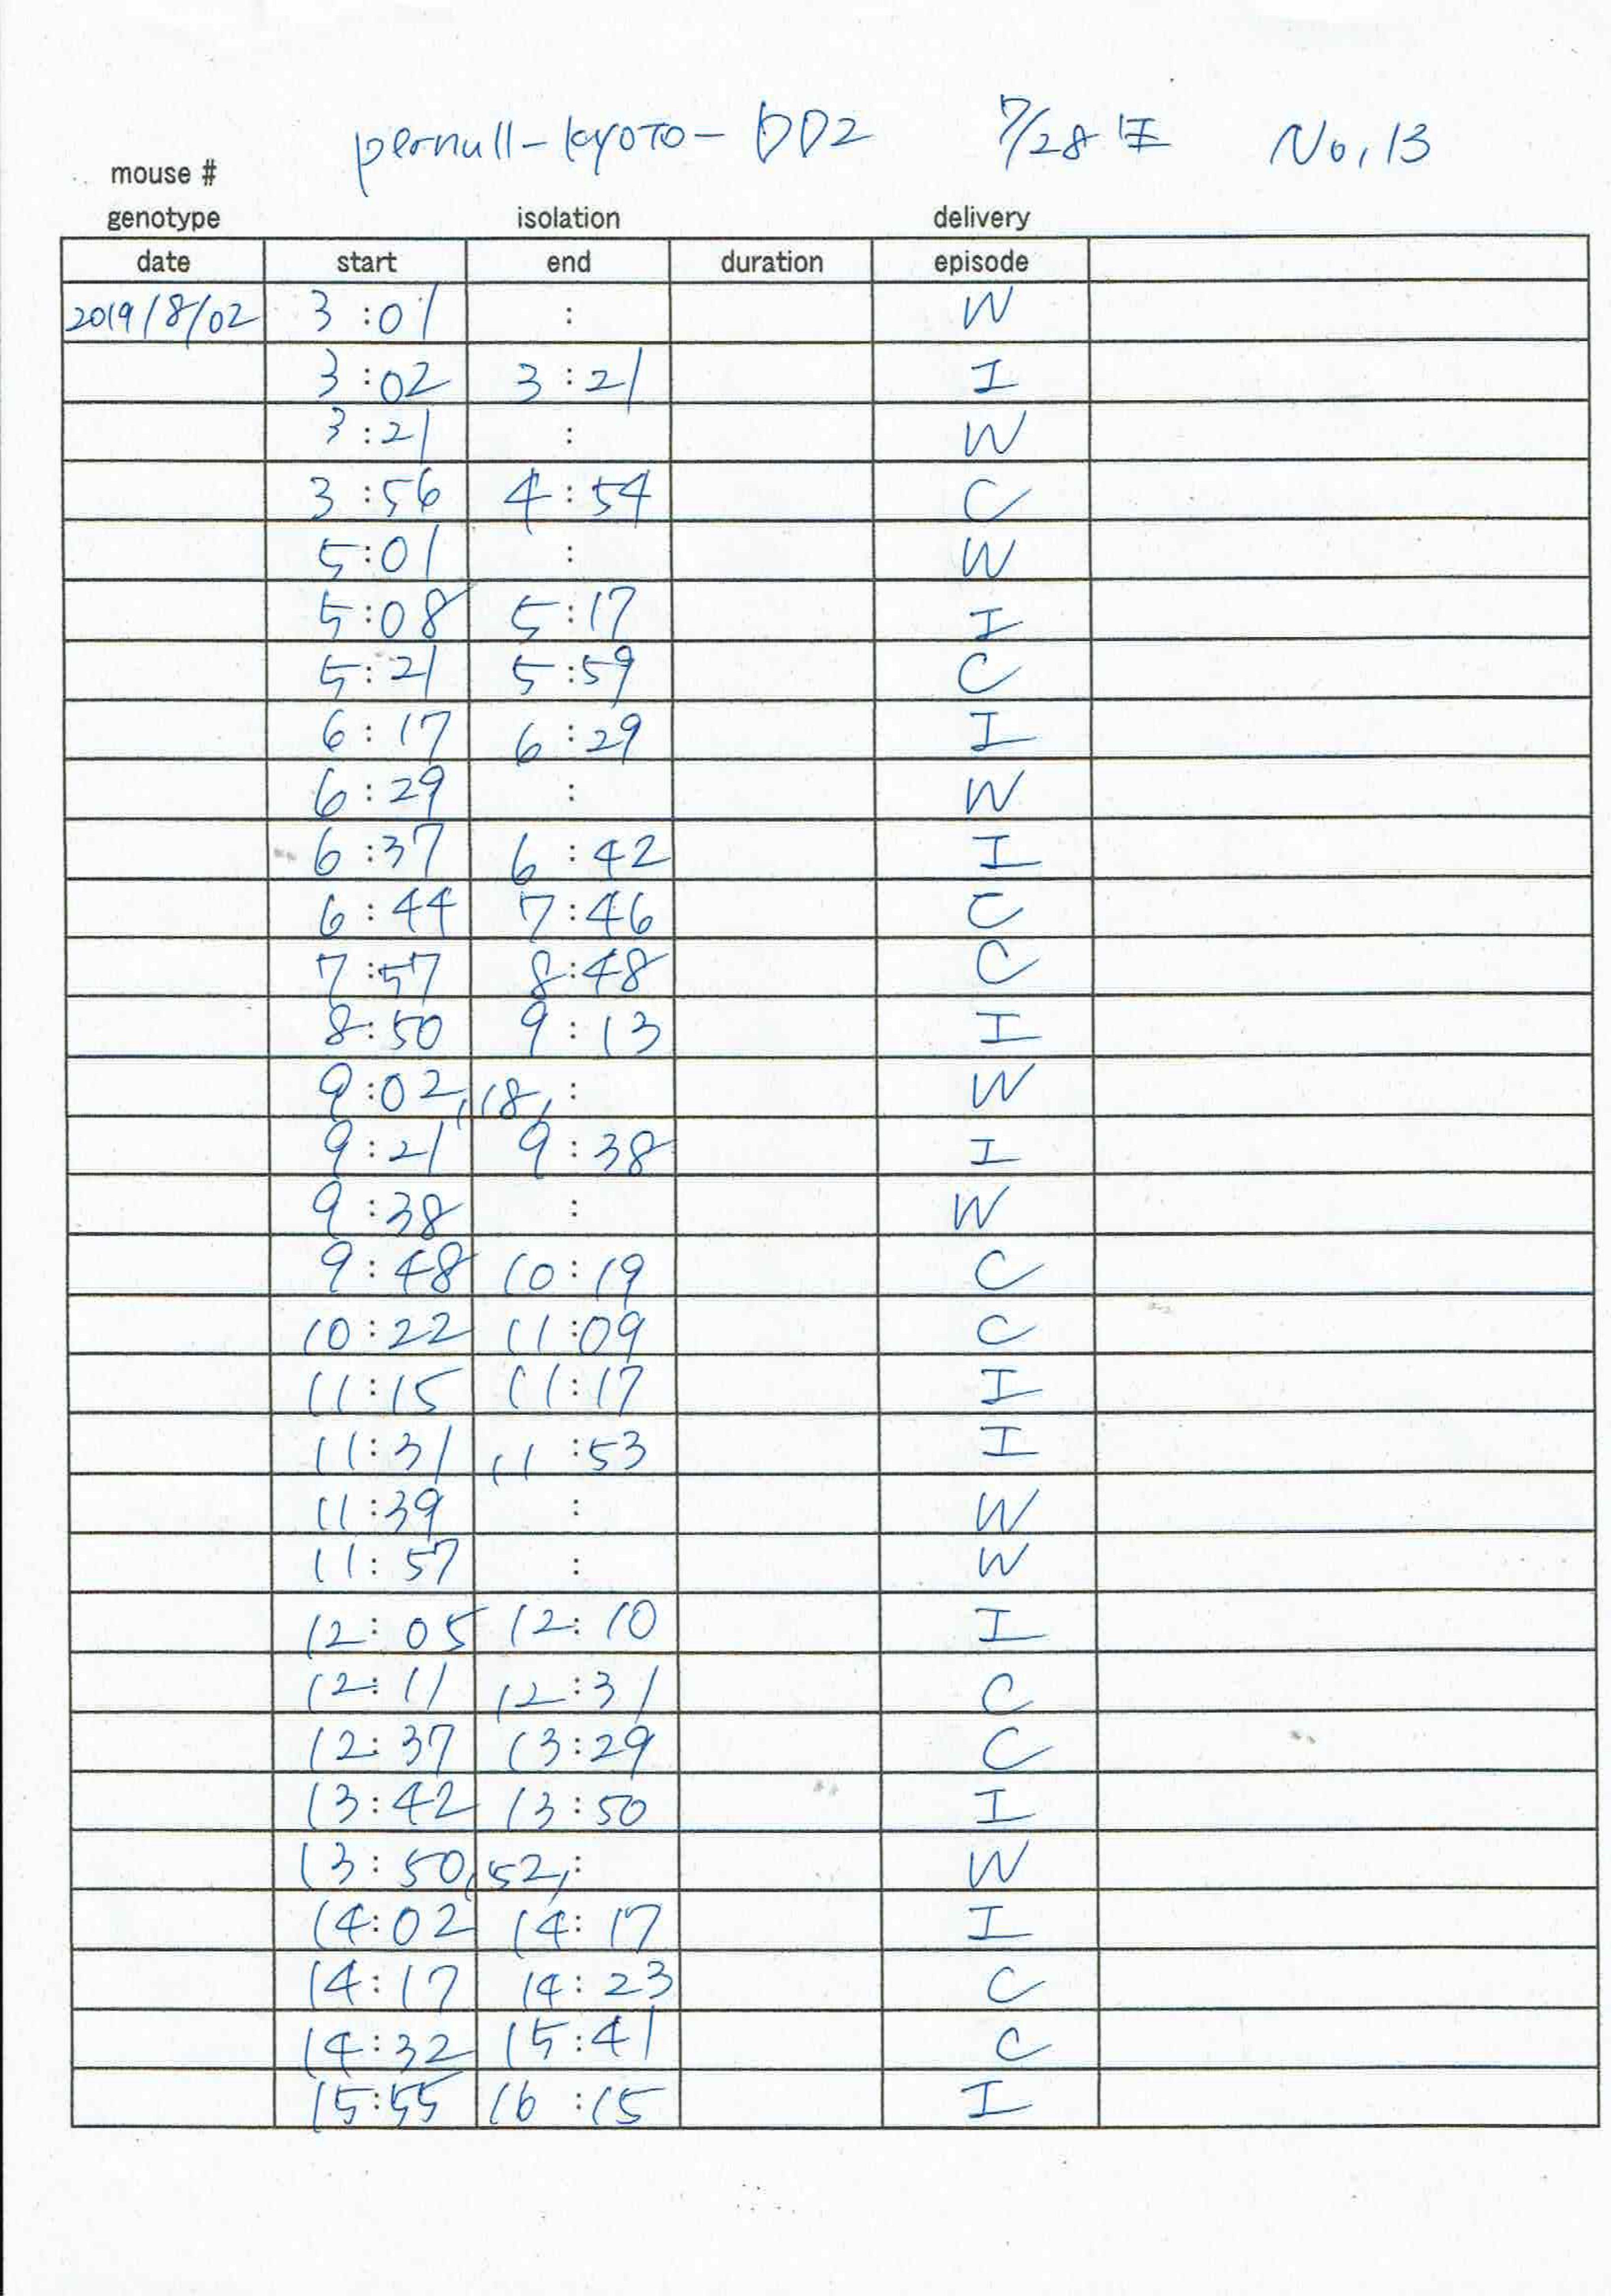 pernull-kyoto-DD2 7/28 No, 13
mouse #
genotype isolation delivery
date start end duration episode
2019/8/02 3:01 : W
3:02 3:21 I
3:21 : W
3:56 4:54 C
5:01 : W
5:08 5:17 I
5:21 5:59 C
6:17 6:29 I
6:29 : W
6:37 6:42 I
6:44 7:46 C
7:57 8:48 C
8:50 9:13 I
9:02,18, : W
9:21 9:38 I
9:38 : W
9:48 10:19 C
10:22 11:09 C
11:15 11:17 I
11:31 11:53 I
11:39 : W
11:57 : W
12:05 12:10 I
12:11 12:31 C
12:37 13:29 C
13:42 13:50 I
13:50,52, : W
14:02 14:17 I
14:17 14:23 C
14:32 15:41 C
15:55 16:15 I